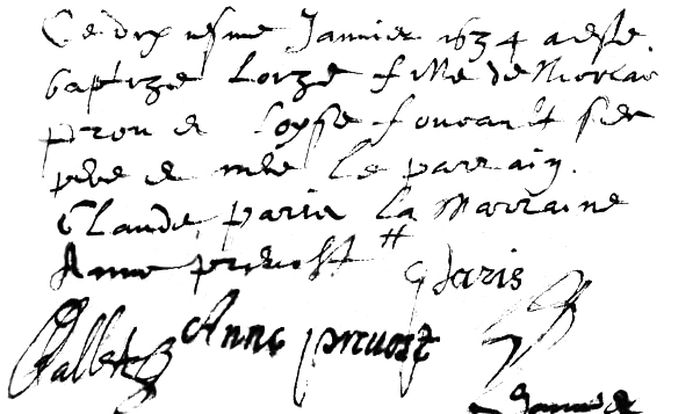 Ce dix esme Janvier 1634 a este
baptize Loyze fille de Nicolas
prou et Loyse fouca ses
pere et mere le parrain
Claude paris la Marraine
Anne prevost
C paris
Anne prevost